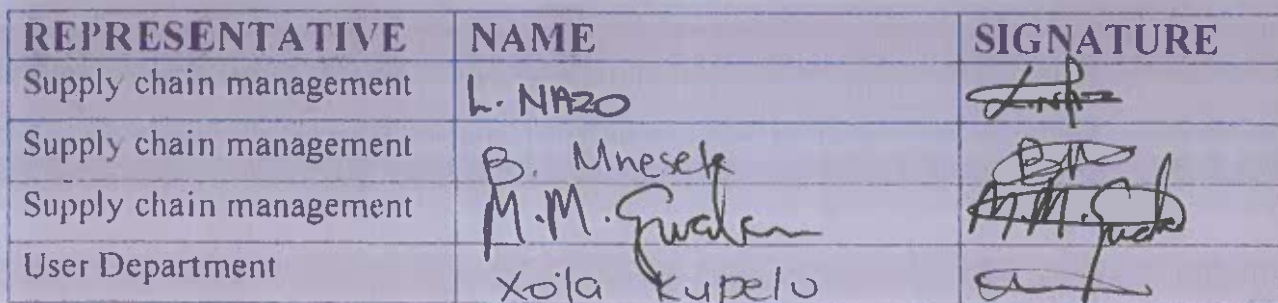 REPRESENTATIVE NAME SIGNATURE
Supply chain management L. NAZO
Supply chain management B.
Supply chain management M.M.
User Department Xola Kupelo